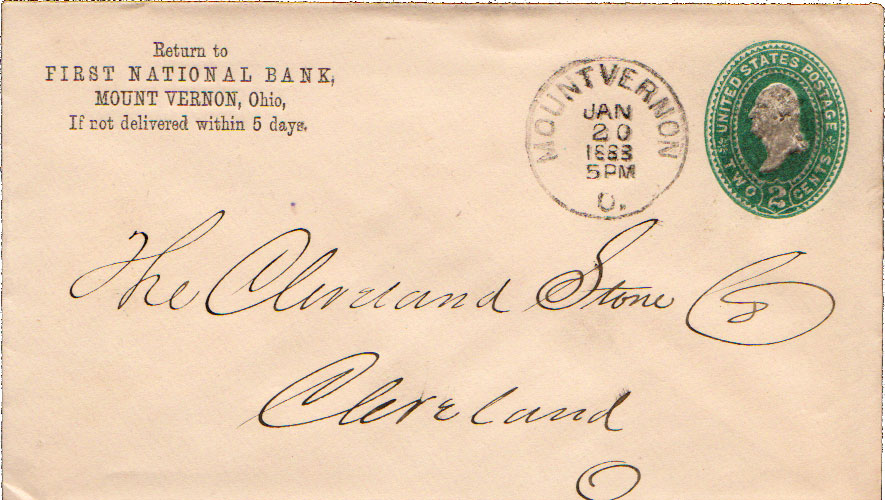 Return to
FIRST NATIONAL BANK,
MOUNT VERNON, Ohio,
If not delivered within 5 days.
MOUNT VERNON
JAN
20
1888
5PM
O.
UNITED STATES POSTAGE
TWO 2 CENTS
The Cleveland Stone Co
Cleveland
O